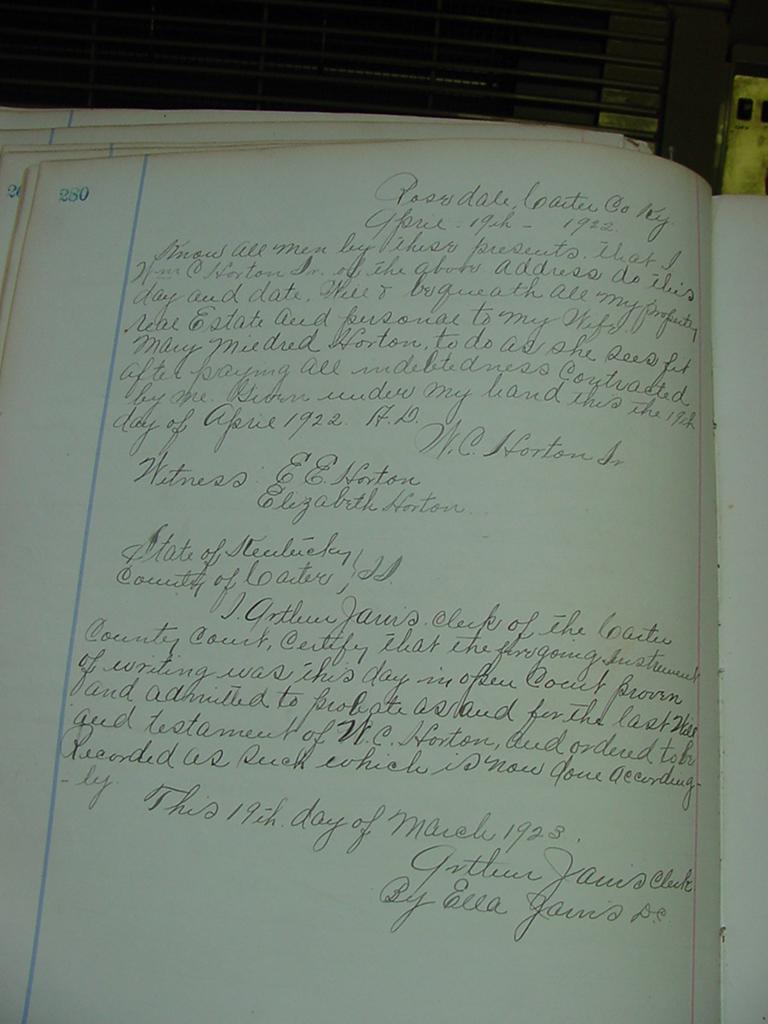 280
Rosedale, Carter Co Ky.
April - 19th - 1922.
Know all men by these presents. that I
Wm C Horton Sr. of the above address do this
day and date, Will & bequeath all my property
real Estate and personal to my Wife,
Mary Mildred Horton, to do as she sees fit
after paying all indebtedness contracted
by me. Given under my hand this the 19th
day of April 1922. A.D.
W.C. Horton Sr
Witness: E E. Horton
Elizabeth Horton
State of Kentucky
County of Carter } SS.
I. Arthur clerk of the Carter
County Court, Certify that the foregoing instrument
of writing was this day in open Court proven
and admitted to probate as and for the last Will
and testament of W.C. Horton, and ordered to be
Recorded as such which is now done according-
-ly.
This 19th. day of March 1923.
Arthur Clerk
By Ella D.C.